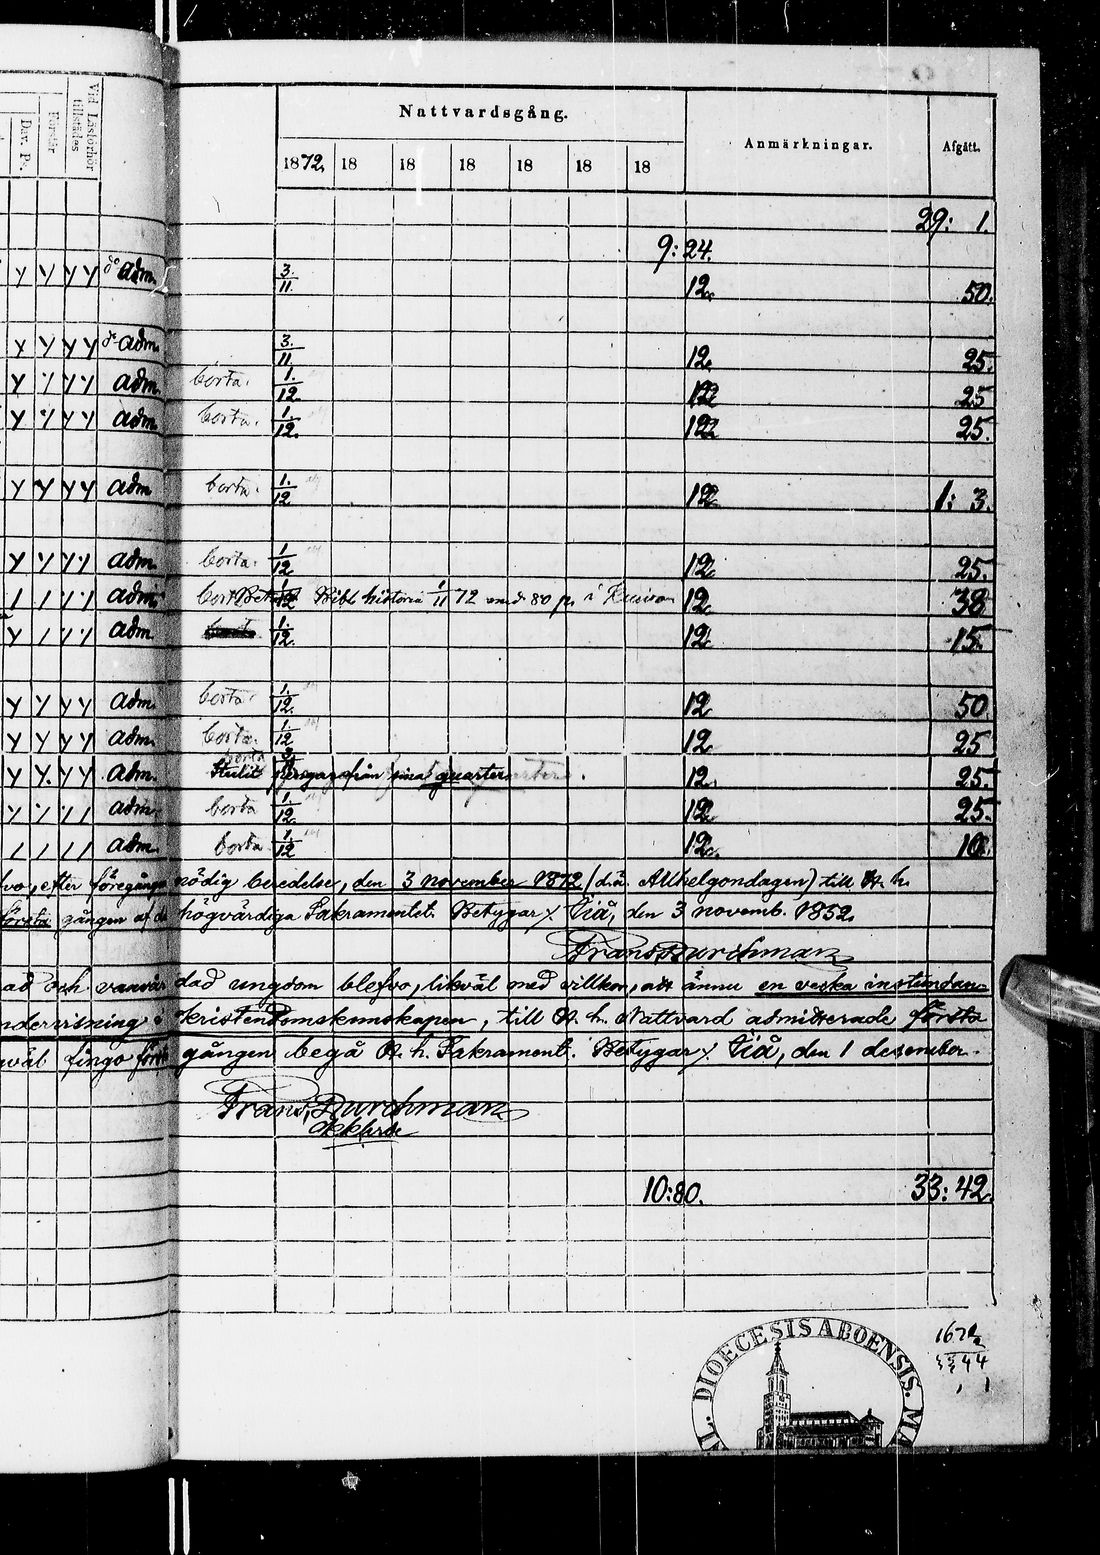 Vid Läsförhör tillstädes
Förstår
Dav. Ps.
Nattvardsgång.
Anmärkningar.
Afgått.
1872. 18 18 18 18 18 18
29: 1.
9:24.
y y y y d:o adm. 3./11 12. 50.
y y y y d:o adm. 3./11 12. 25.
y / / / adm. borta. 1./12. 12 25
y y y y adm. borta. 1./12. 12 25.
y y y y adm borta. 1./12 12 1: 3.
y y y y adm. borta. 1/12 12 25.
/ / / / adm. Bibl. historia 1/11 72 med 80 p. i 12 38
y / / / adm. 1./12. 12 15.
y / y y adm. borta 1./12. 12 50.
y y y y adm. borta. 1./12 12 25
y y y y adm. borta från sina quarter 12. 25.
y / / / adm. borta 1./12. 12 25.
/ / / / adm. borta 1./12 12. 10.
efter föregången nödig beredelse, den 3 november 1872 (d.ä. Allhelgondagen) till H. h.
första gången af det högvärdiga Sakramentet. Betygar /. den 3 novemb. 1852.
Frans Durchman
ad och vanvårdad ungdom blefvo, likväl med villkor, att ännu en vecka
undervisning i kristendomskunskapen, till H. h. Nattvard admitterade första
fingo första gången begå H. h. Sakrament. Betygar /. den 1 december.
Frans Durchman
10:80. 33:42.
DIOECESIS ABOENSIS. MA